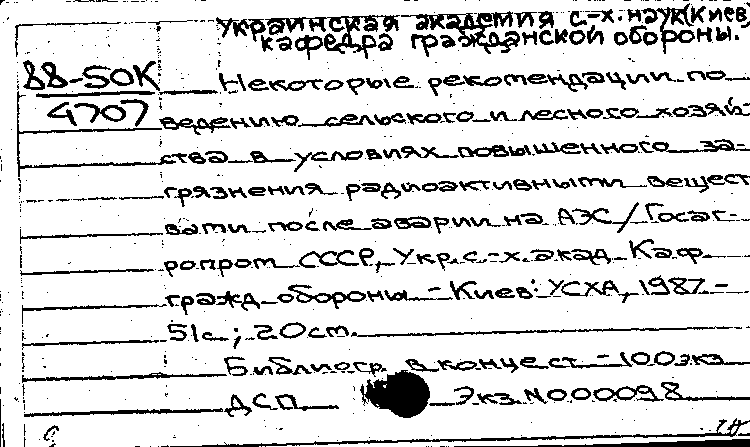 Украинская академия с.-х. наук (Киев)
кафедра гражданской обороны.
88-50К
4707
Некоторые рекомендации по
ведению сельского и лесного хозяй-
ства в условиях повышенного за-
грязнения радиоактивными вещест
вами после аварии на АЭС/Госаг-
ропром СССР, Укр. с.-х. акад. Каф.
гражд. обороны - Киев: УСХА, 1987 -
51с.; 20см.
Библиогр. в конце ст - 100экз
ДСП Экз N000098